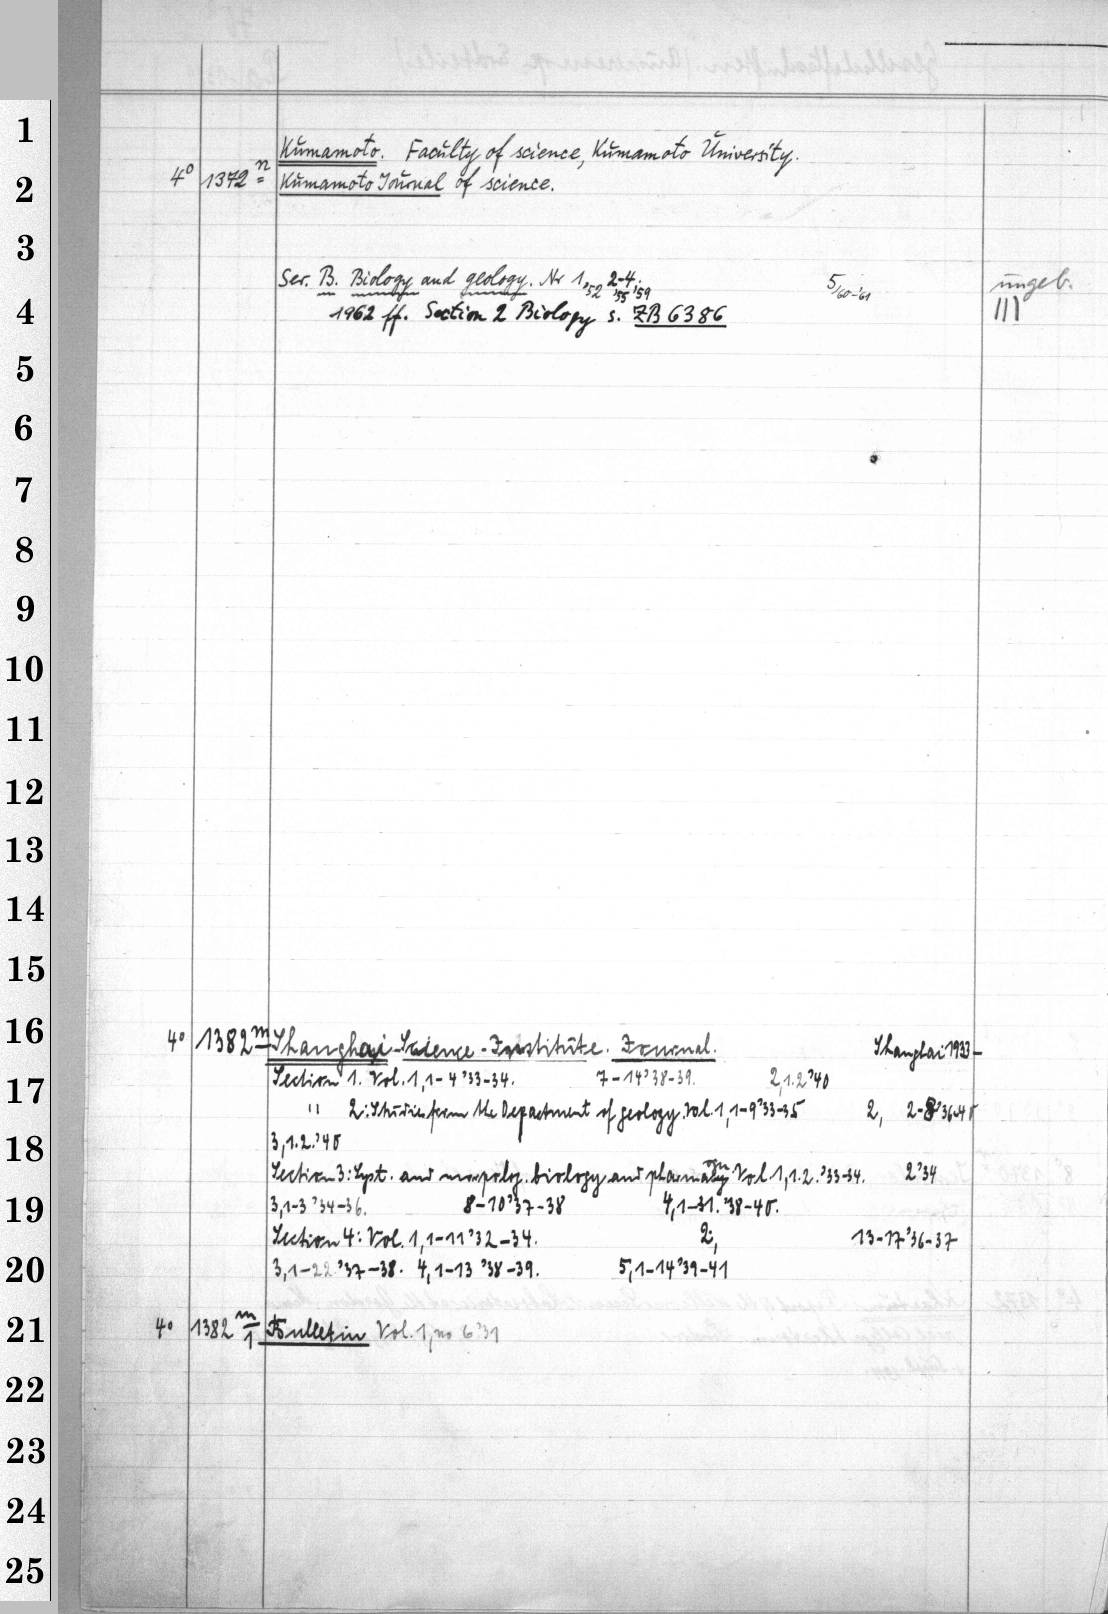 Kumamoto. Faculty of science, Kumamoto University.
4° 1372 n = Kumamoto Journal of science.
Ser. B. Biology and geology. Nr 1,'52 2-4,'55,'59 5/60-'61 ungeb.
1962 ff. Section 2 Biology s. ZB 6386 III
4° 1382 m Shanghai Science-Institute. Journal. Shanghai 1933-
Section 1. Vol. 1,1-4 '33-34. 7-14 '38-39. 2,1.2 '40
" 2: Studies from the Department of geology. Vol. 1,1-9 '33-35 2, 2-8 '36-40
3,1.2. '40
Section 3: Syst. and morpolog. biology and Vol 1,1.2. '33-34. 2 '34
3,1-3 '34-36. 8-10 '37-38 4,1-31. '38-40.
Section 4: Vol. 1,1-11 '32-34. 2, 13-17 '36-37
3,1-22 '37-38. 4,1-13 '38-39. 5,1-14 '39-41
4° 1382 m/1 Bulletin Vol. 1, no 6 '31
1
2
3
4
5
6
7
8
9
10
11
12
13
14
15
16
17
18
19
20
21
22
23
24
25